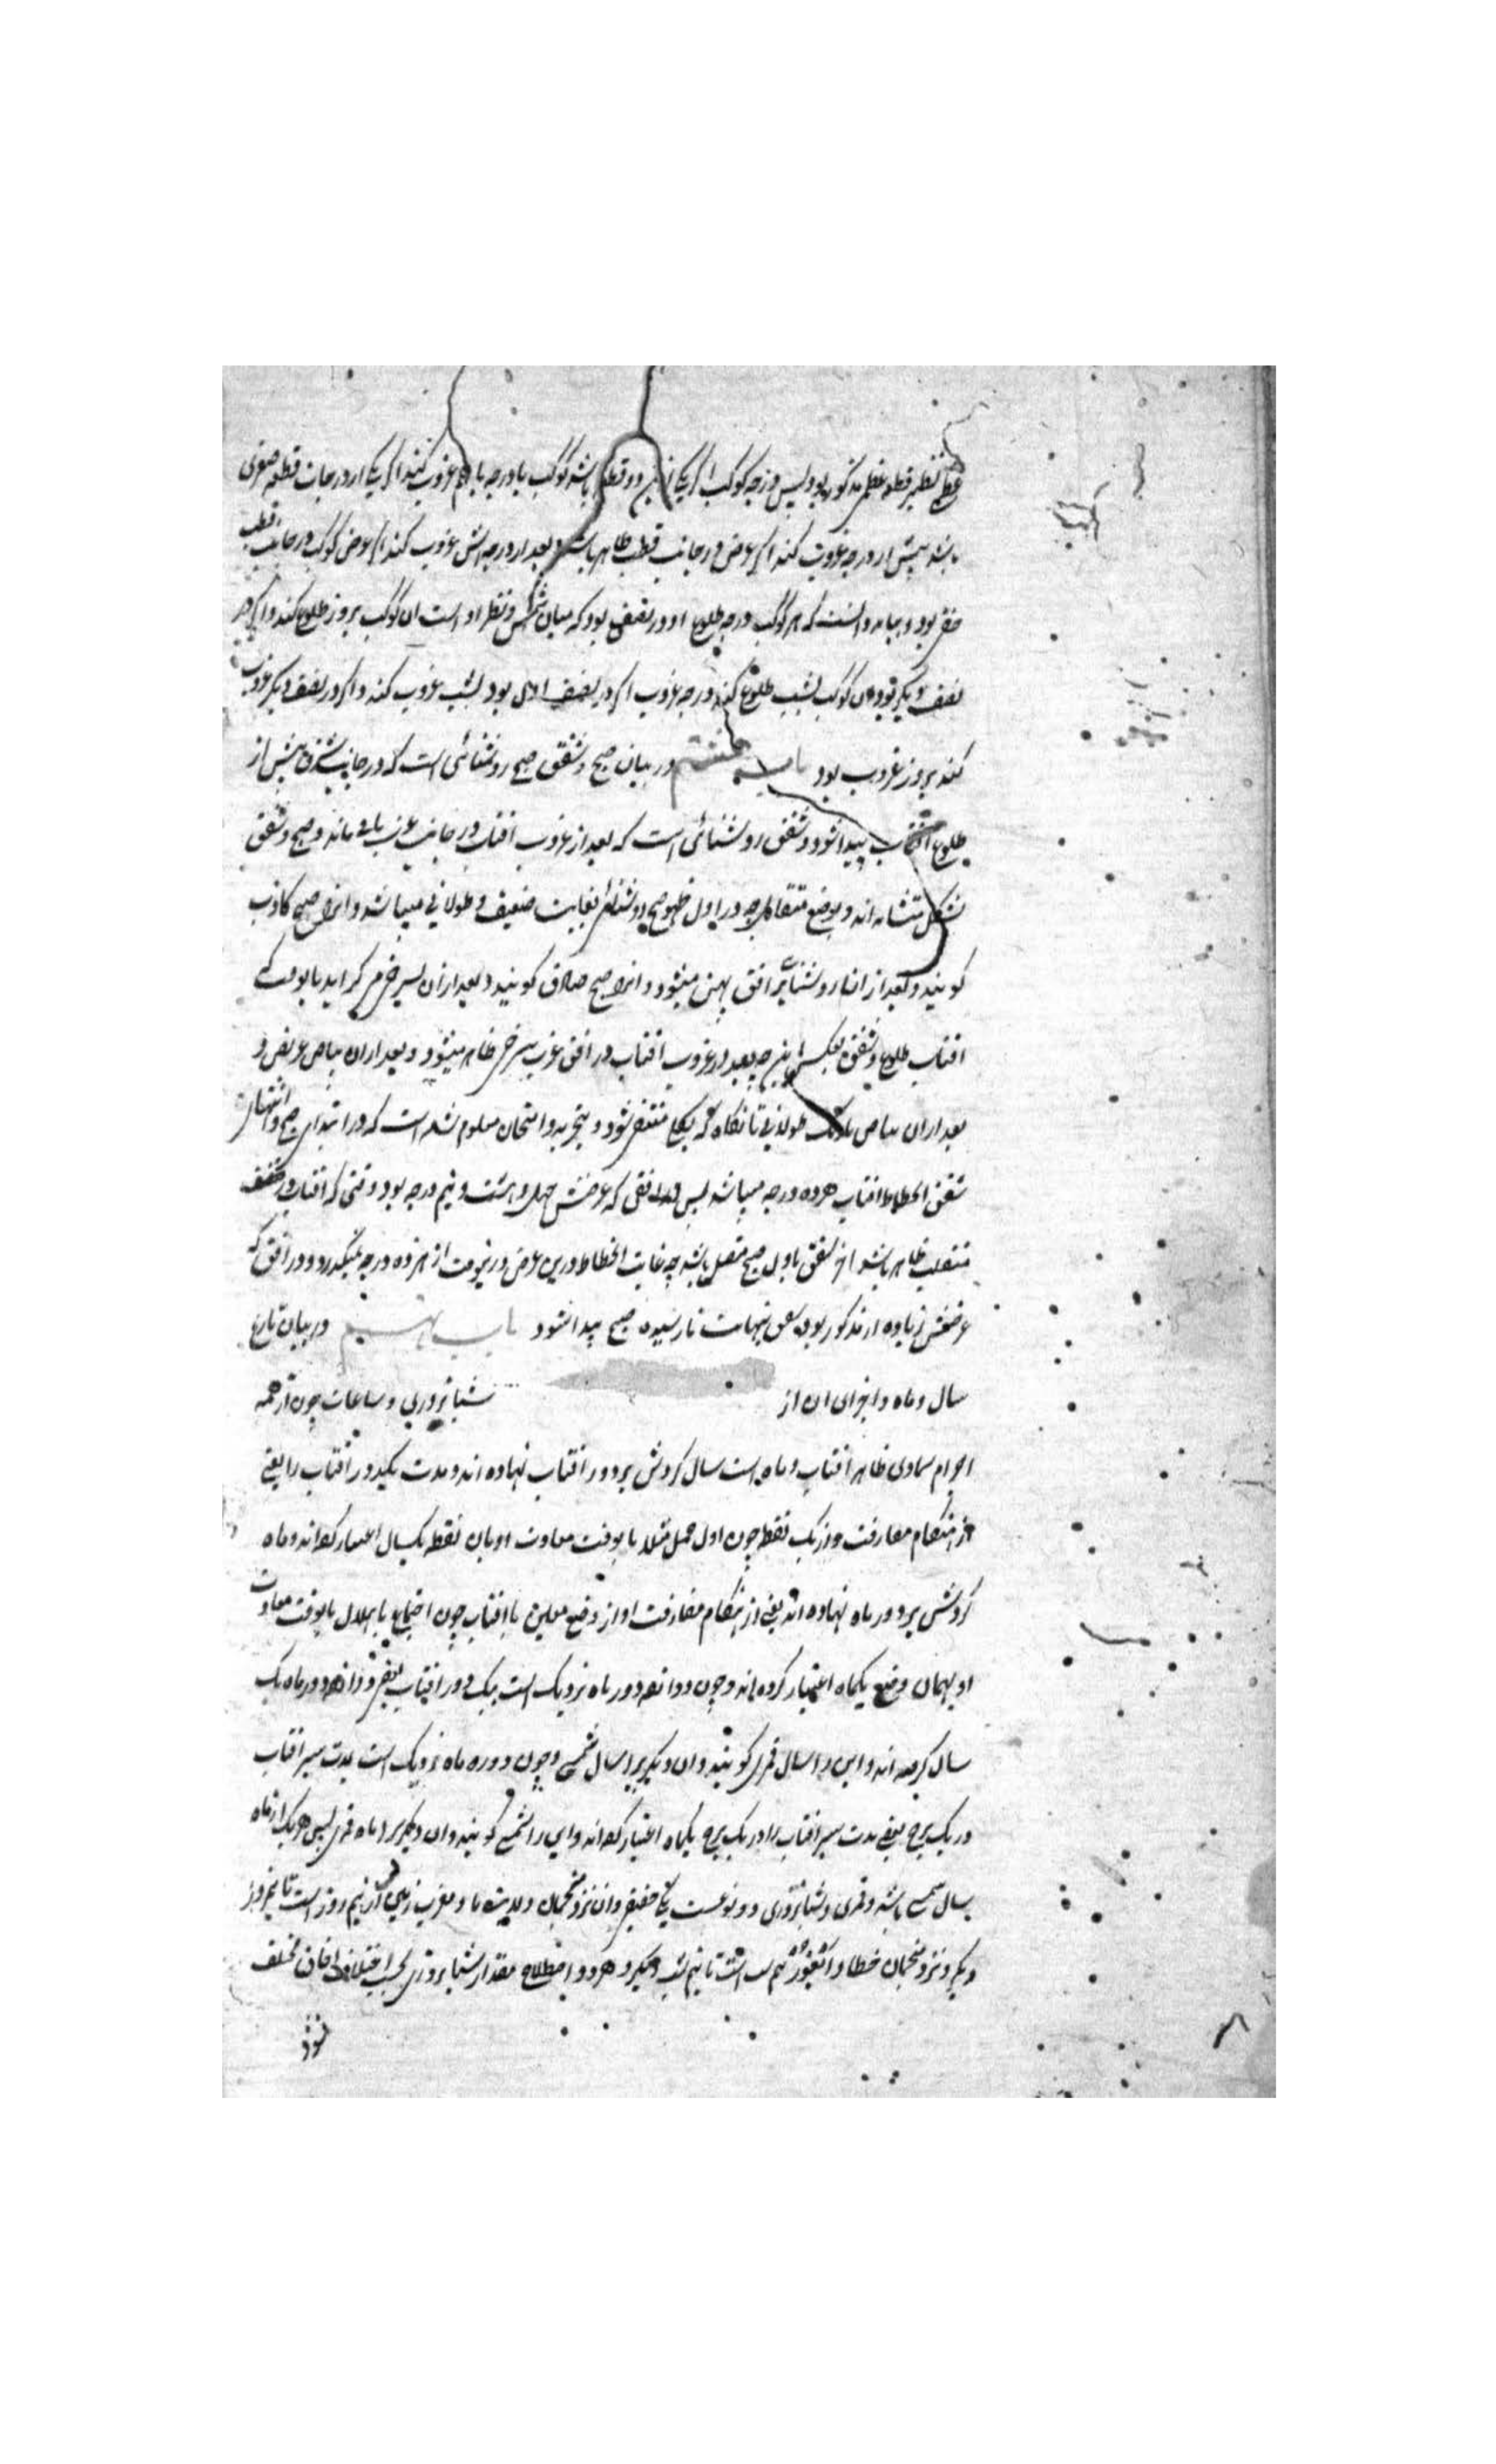 عظمی نظیر قطعه عظمی مذکور بود پس درجه کوکب اگر یکی ازین دو قطه باشد کوکب با درجه باهم غروب کنند اگر یکی از درجات قطعه صغری
باشد پیش از درجه غروب کند اگر عرض در جانب قطب ظاهر باشد و بعد از درجه اش غروب کند اگر عرض کوکب در جانب قطب
خفی بود و بباید دانست که هر کوکب درجه طلوع او در نصفی بود که میان شمس و نظیر او است ان کوکب بروز طلوع کند و اگر در
نصف دیگر بود ان کوکب بشب طلوع کند و درجه غروب اگر در نصف اول بود بشب غروب کند و اگر در نصف دیگر غروب
کند بروز غروب بود باب هشتم در بیان صبح و شفق صبح روشنائی است که در جانب شرق پیش از
طلوع افتاب پیدا شود و شفق روشنائی است که بعد از غروب افتاب در جانب غرب باقی ماند و صبح و شفق
بشکل متشابه اند و بوضع متقابل چه در اول ظهور صبح روشنائی بغایت ضعیف و طولانی میباشد و انرا صبح کاذب
کویند و بعد از ان روشنائی بر افق پهن میشود و انرا صبح صادق کویند و بعد از ان بسرخی می کراید تا بوقت که
افتاب طلوع و شفق بعکس این چه بعد از غروب افتاب در افق غرب سرخی ظاهر میشود و بعد از ان بیاض عریض و
بعد از ان بیاض باریک طولانی تا انکاه که بکلی منتفی شود و بتجربه و امتحان معلوم شده است که در ابتدای صبح و انتهای
شفق انحطاط افتاب هژده درجه میباشد پس در افقی که عرضش چهل و هشت و نیم درجه بود وقتی که افتاب در
منقلب ظاهر باشد اخر شفق باول صبح متصل باشد چه غایت انحطاط درین عرض درینوقت از هژده درجه نمیکذرد و در افق که
عرضش زیاده از مذکور بود شفق بنهایت نارسیده صبح پیدا شود باب نهم در بیان تاریخ
سال و ماه و اجزای ان از شبانروزی و ساعات چون از همه
اجرام سماوی ظاهر افتاب و ماه است سال کردش بر دور افتاب نهاده اند و مدت یکدور افتاب را یعنی
از هنکام مفارقت وی از یک نقطه چون اول حمل مثلا تا بوقت معاودت او بان نقطه یکسال اعتبار کرده اند و ماه
کردش بر دور ماه نهاده اند یعنی از هنکام مفارقت او از وضع معین با افتاب چون اجتماع یا هلال تا بوقت معاودت
او بهمان وضع یکماه اعتبار کرده اند و چون دوازده دور ماه نزدیک است بیک دور افتاب دوازده دور ماه یک
سال کرفته اند و این را سال قمری کویند و ان دیکر را سال شمسی و چون دوره ماه نزدیک است بمدت سیر افتاب
در یک برج یعنی مدت سیر افتاب را در یک برج یکماه اعتبار کرده اند و این را شمسی کویند و ان دیکر را ماه قمری پس هر یک از ماه
سال شمسی باشد و قمری و شبانروزی دو نوعست یکی حقیقی و ان نزد منجمان ولایت ما و مغرب زمین از نیم روز است تا نیم روز
دیکر و نزد منجمان خطا و ایغور از نیم شب است تا نیم شب دیکر و هر دو اصطلاح مقدار شبانروزی بحسب اختلاف افاق مختلف
نشود